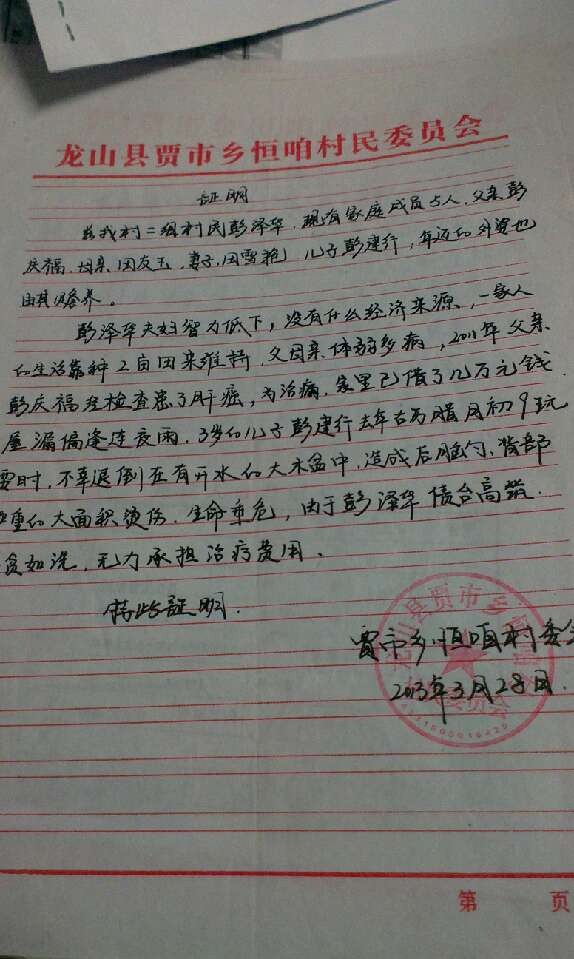 龙山县贾市乡恒咱村民委员会
证明
兹我村二组村民彭泽华，现有家庭成员5人，父亲彭
庆福，母亲田友玉，妻子田雪艳，儿子彭建行，年迈的外婆也
由其供养。
彭泽华夫妇智力低下，没有什么经济来源，一家人
的生活靠种2亩田来维持，父母亲体弱多病，2011年父亲
彭庆福经检查患了肝癌，为治病，家里已借了几万元钱，
屋漏偏逢连夜雨，3岁的儿子彭建行去年古历腊月初9玩
耍时，不幸退倒在有开水的大木盆中，造成后脑勺，背部
重的大面积烫伤，生命垂危，由于彭泽华债台高筑，
贫如洗，无力承担治疗费用。
特此证明。
贾市乡恒咱村委会
2013年3月28日
第 页